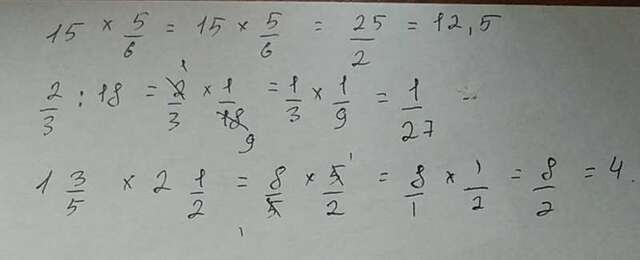 15 × 5/6 = 15 × 5/6 = 25/2 = 12,5
2/3 : 18 = 2/3 1 × 1/18 9 = 1/3 × 1/9 = 1/27
1 3/5 × 2 1/2 = 8/5 1 × 5/2 1 = 8/1 × 1/2 = 8/2 = 4.